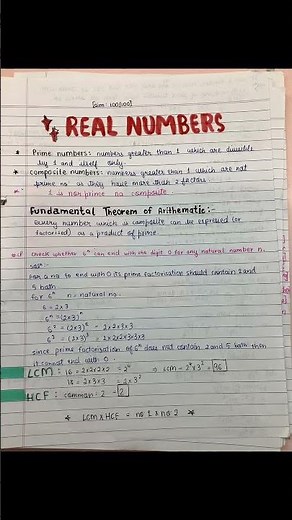 REAL NUMBERS
* Prime numbers: numbers greater than 1 which are divisible
by 1 and itself only.
* composite numbers: numbers greater than 1 which are not
prime no as they have more than 2 factors
* 1 is nor prime no composite.
Fundamental Theorem of Arithematic:-
Every number which is composite can be expressed (or
factorised) as a product of prime.
Check whether 6ⁿ can end with the digit 0 for any natural number n.
For a no to end with 0 its prime factorisation should contain 2 and
5 both
for 6ⁿ n = natural no.
6 = 2x3
6ⁿ = (2x3)ⁿ
6² = (2x3)² = 2x2x3x3
6³ = (2x3)³ = 2x2x2x3x3x3
since prime factorisation of 6ⁿ does not contain 2 and 5 both then
it cannot end with 0.
LCM: 16 = 2x2x2x2 = 2⁴
18 = 2x3x3 = 2x3²
HCF: common: 2 = 2
* LCM x HCF = no 1 x no 2 *